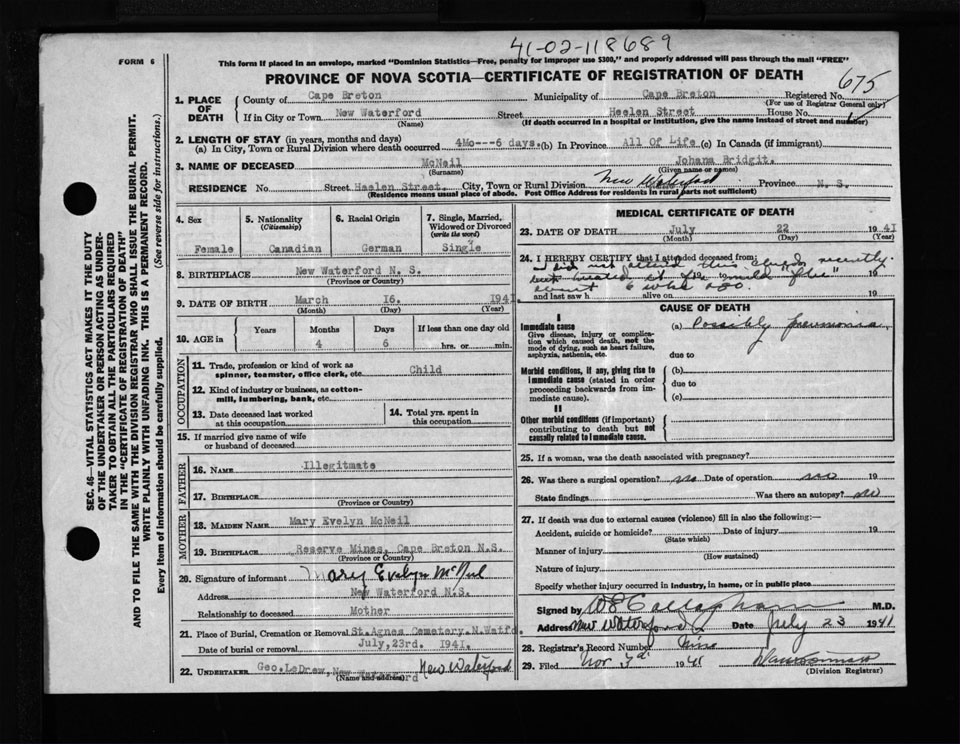 41-02-118689
FORM 6
This form if placed in an envelope, marked "Dominion Statistics—Free, penalty for improper use $300," and properly addressed will pass through the mail "FREE"
PROVINCE OF NOVA SCOTIA—CERTIFICATE OF REGISTRATION OF DEATH
675
1. PLACE OF DEATH County of Cape Breton Municipality of Cape Breton Registered No.
(For use of Registrar General only)
If in City or Town New Waterford Street Heelen Street House No.
(Name) (If death occurred in a hospital or institution, give the name instead of street and number)
2. LENGTH OF STAY (in years, months and days)
(a) In City, Town or Rural Division where death occurred 4Mo---6 days. (b) In Province All Of Life (c) In Canada (if immigrant)
3. NAME OF DECEASED McNeil Johana Bridgit.
(Surname) (Given name or names)
RESIDENCE No. Street Haelen Street. City, Town or Rural Division New Waterford Province N. S.
(Residence means usual place of abode. Post Office Address for residents in rural parts not sufficient)
4. Sex 5. Nationality (Citizenship) 6. Racial Origin 7. Single, Married, Widowed or Divorced (write the word)
Female Canadian German Single
8. BIRTHPLACE New Waterford N. S.
(Province or Country)
9. DATE OF BIRTH March 16. 1941.
(Month) (Day) (Year)
10. AGE in Years Months Days If less than one day old
4 6 hrs. or min.
OCCUPATION
11. Trade, profession or kind of work as spinner, teamster, office clerk, etc. Child
12. Kind of industry or business, as cotton-mill, lumbering, bank, etc.
13. Date deceased last worked at this occupation
14. Total yrs. spent in this occupation
15. If married give name of wife or husband of deceased
FATHER
16. NAME Illegitmate
17. BIRTHPLACE
(Province or Country)
MOTHER
18. MAIDEN NAME Mary Evelyn McNeil
19. BIRTHPLACE Reserve Mines, Cape Breton N.S.
(Province or Country)
20. Signature of informant Mary Evelyn McNeil
Address New Waterford N.S.
Relationship to deceased Mother
21. Place of Burial, Cremation or Removal St. Agnes Cemetery. N. Watfd.
Date of burial or removal July, 23rd. 1941.
22. UNDERTAKER Geo. LeDrew, New Waterford New Waterford
(Name and address)
MEDICAL CERTIFICATE OF DEATH
23. DATE OF DEATH July 22 1941
(Month) (Day) (Year)
24. I HEREBY CERTIFY that I attended deceased from:
I did not attend this child recently
but treated it for "mild flu" 19
about 6 wks ago.
and last saw h alive on 19
CAUSE OF DEATH
I
Immediate cause (a) Possibly pneumonia
Give disease, injury or complication which caused death, not the mode of dying, such as heart failure, asphyxia, asthenia, etc.
due to
Morbid conditions, if any, giving rise to immediate cause (stated in order proceeding backwards from immediate cause).
(b)
due to
(c)
II
Other morbid conditions (if important) contributing to death but not causally related to immediate cause.
25. If a woman, was the death associated with pregnancy?
26. Was there a surgical operation? no Date of operation no 19
State findings Was there an autopsy? no
27. If death was due to external causes (violence) fill in also the following:—
Accident, suicide or homicide? Date of injury 19
(State which)
Manner of injury
(How sustained)
Nature of injury
Specify whether injury occurred in industry, in home, or in public place
Signed by W E Callaghan M.D.
Address New Waterford Date July 23 1941
28. Registrar's Record Number
29. Filed Nov. 3rd 1941
(Division Registrar)
SEC. 46—VITAL STATISTICS ACT MAKES IT THE DUTY
OF THE UNDERTAKER OR PERSON ACTING AS UNDER-
TAKER TO OBTAIN ALL THE PARTICULARS REQUIRED
IN THE "CERTIFICATE OF REGISTRATION OF DEATH"
AND TO FILE THE SAME WITH THE DIVISION REGISTRAR WHO SHALL ISSUE THE BURIAL PERMIT.
WRITE PLAINLY WITH UNFADING INK. THIS IS A PERMANENT RECORD.
Every item of information should be carefully supplied. (See reverse side for instructions.)